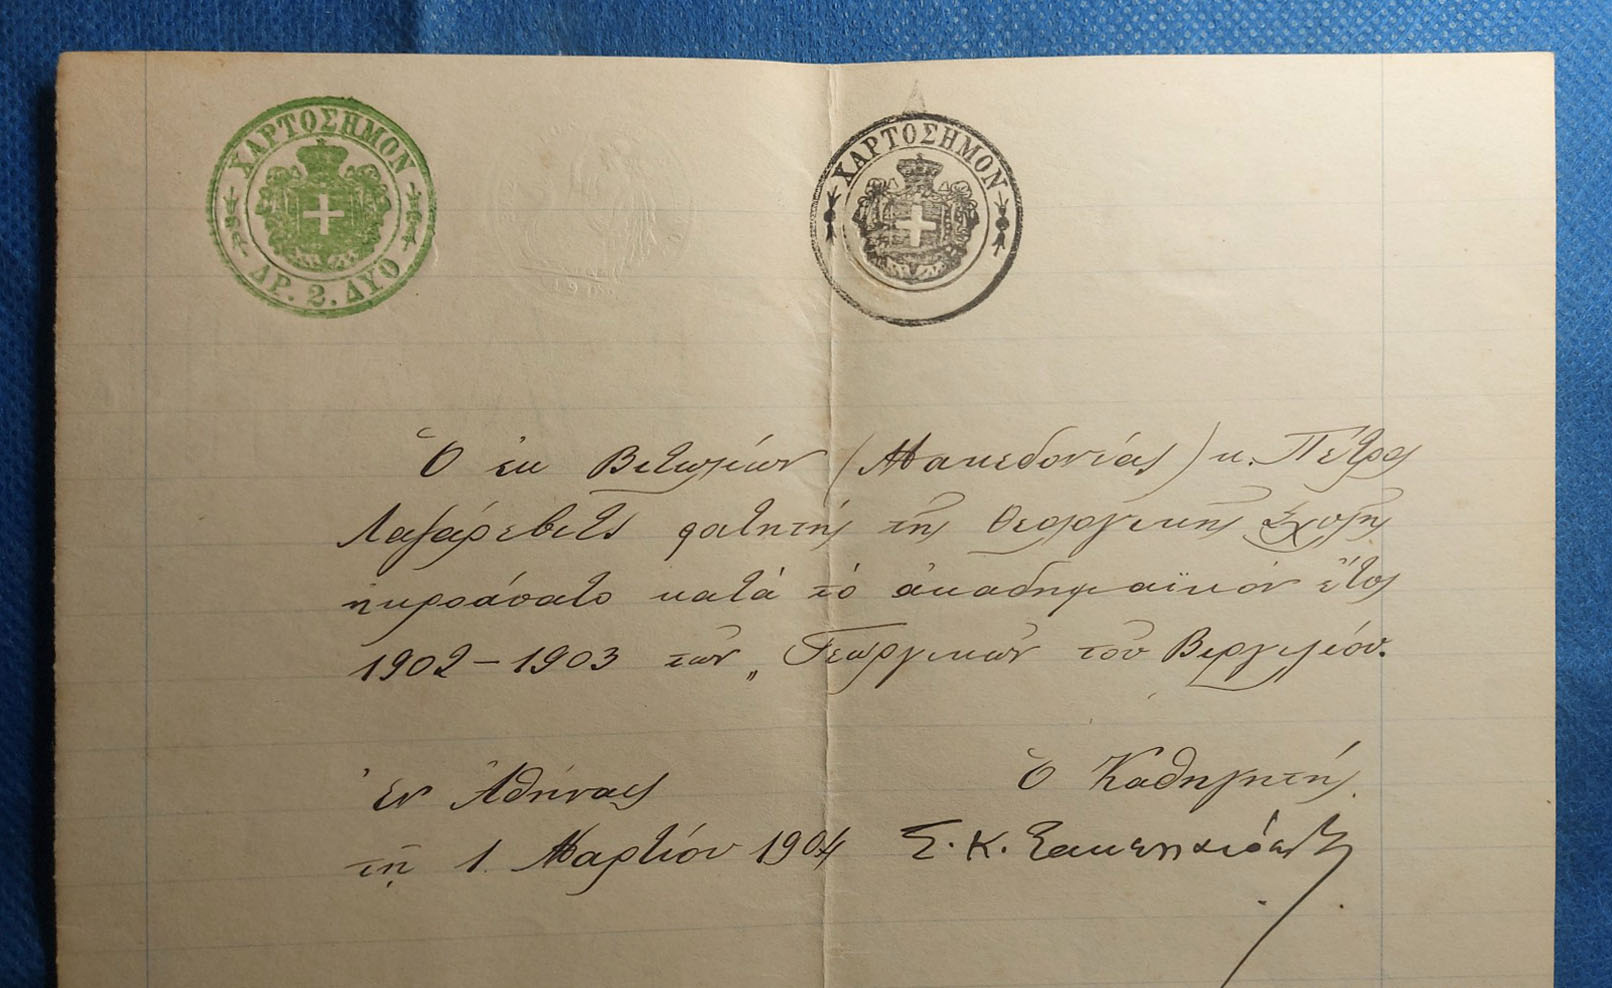 ΧΑΡΤΟΣΗΜΟΝ
ΔΡ. 2. ΔΥΟ
ΧΑΡΤΟΣΗΜΟΝ
Ὁ ἐκ Βιτωλίων (Μακεδονίας) κ. Πέτρος
Λαζάρεβιτς φοιτητὴς τῆς Θεολογικῆς Σχολῆς
ἠκροάσατο κατὰ τὸ ἀκαδημαϊκὸν ἔτος
1902-1903 τῶν „ Γεωργικῶν τοῦ Βιργιλίου.
Ἐν Ἀθήναις
τῇ 1 Μαρτίου 1904
Ὁ Καθηγητής
Σ. Κ. Σακελλαρόπουλος